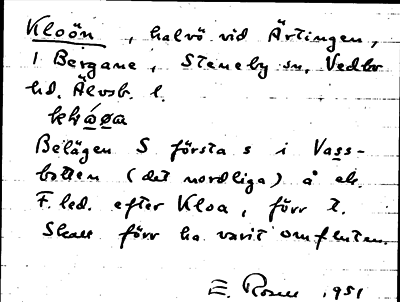 Kloön, halvö vid Ärtingen,
i Bergane, Steneby sn, Vedbo
hd. Älvsb. l.
Belägen S första s i Vass-
botten (det nordliga) å ek.
F. led. efter Kloa, förr t.
Skall förr ha varit omfluten.
E. Rosell 1951